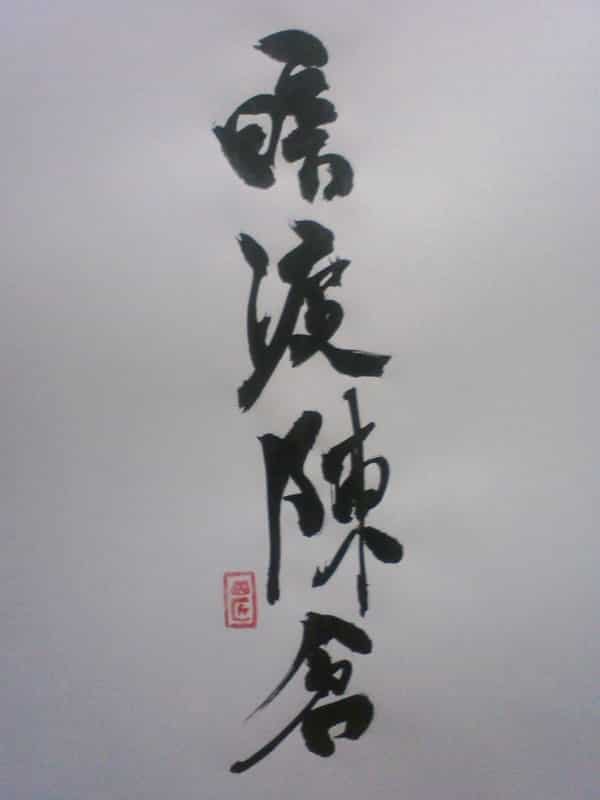 暗渡陳倉